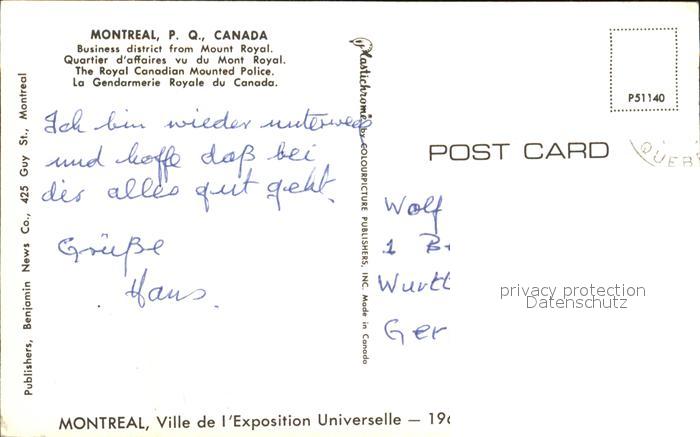 MONTREAL, P. Q., CANADA
Business district from Mount Royal.
Quartier d'affaires vu du Mont Royal.
The Royal Canadian Mounted Police.
La Gendarmerie Royale du Canada.
Ich bin wieder unterwegs
und hoffe daß bei
dir alles gut geht.
Grüße
Hans.
Publishers, Benjamin News Co., 425 Guy St., Montreal
Plastichrome by COLOURPICTURE PUBLISHERS, INC. Made in Canada
P51140
POST CARD
QUEB
Wolf
1 B
Wurtt
Ger
privacy protection
Datenschutz
MONTREAL, Ville de l'Exposition Universelle — 196